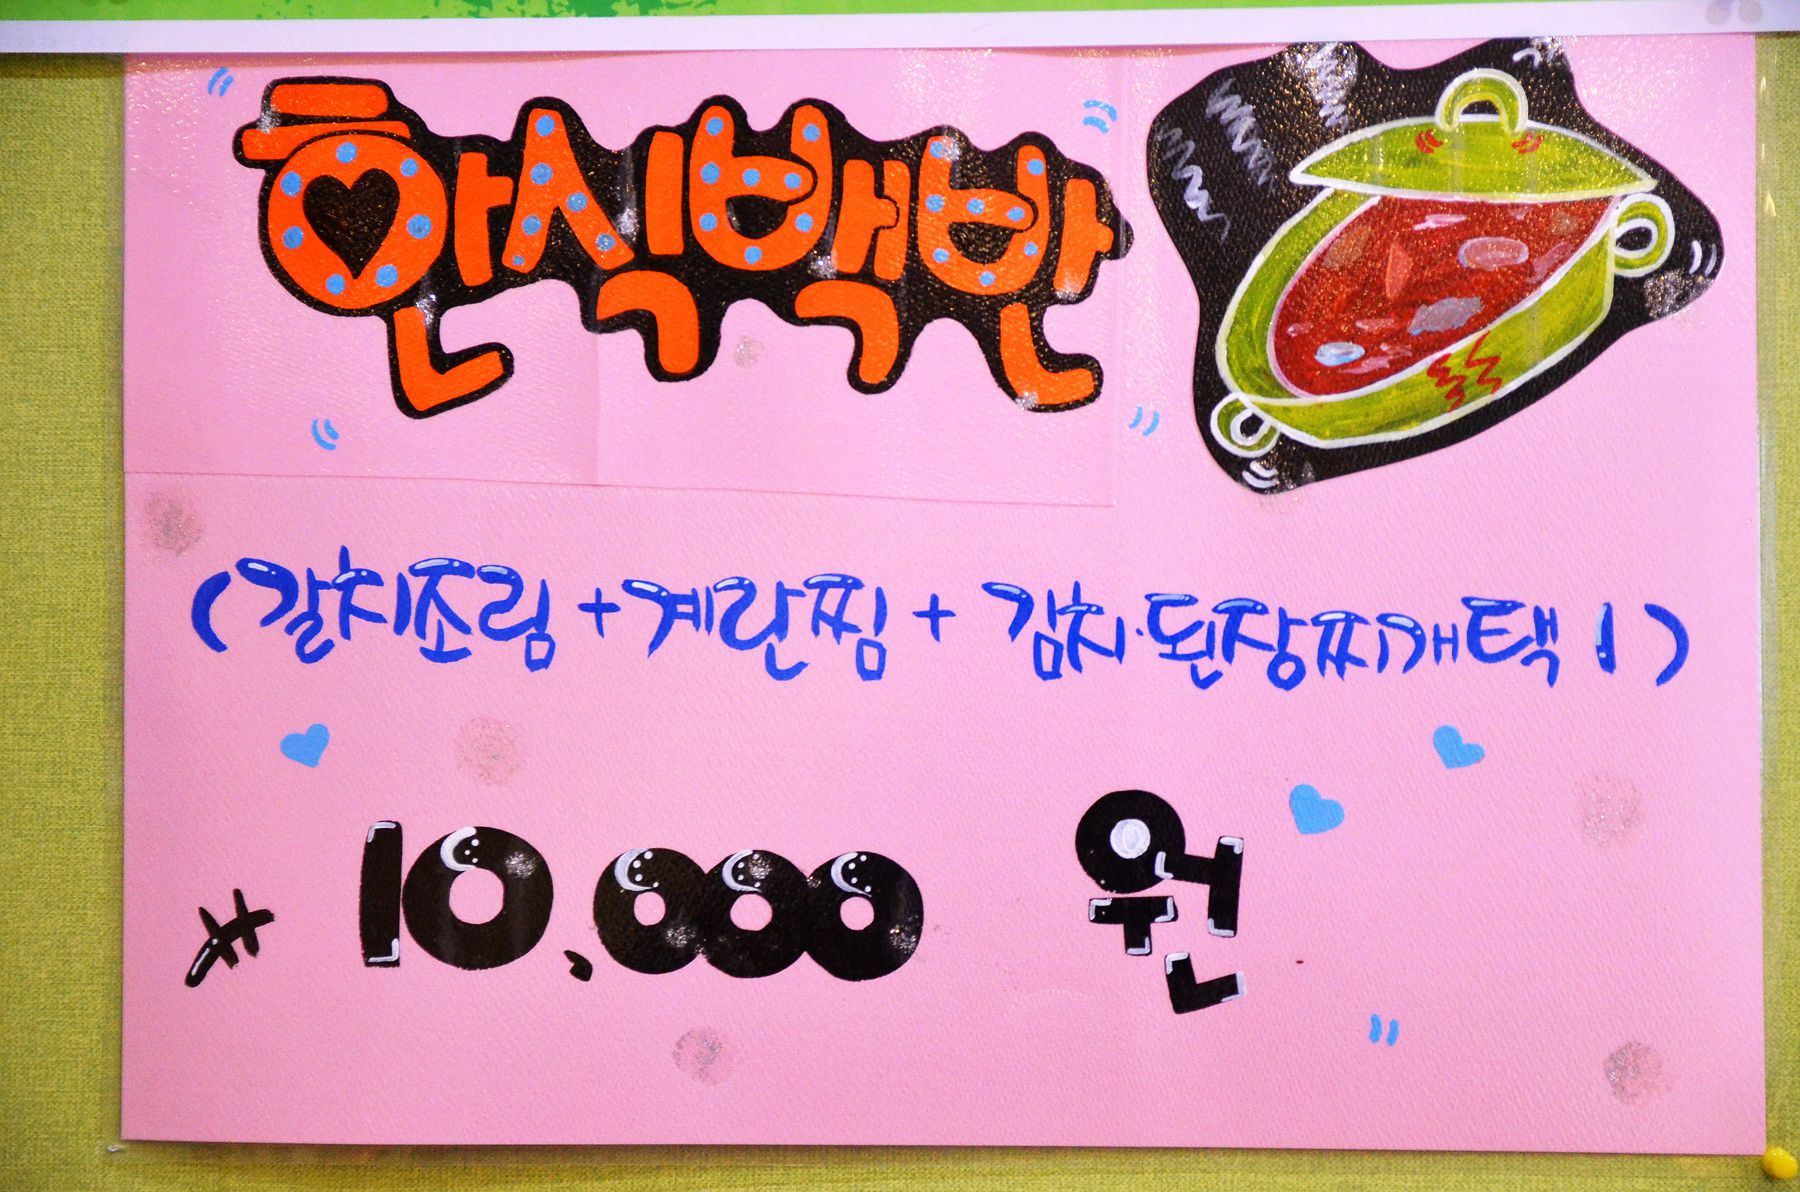 한식백반
(갈치조림+계란찜+김치·된장찌개택1)
10,000 원